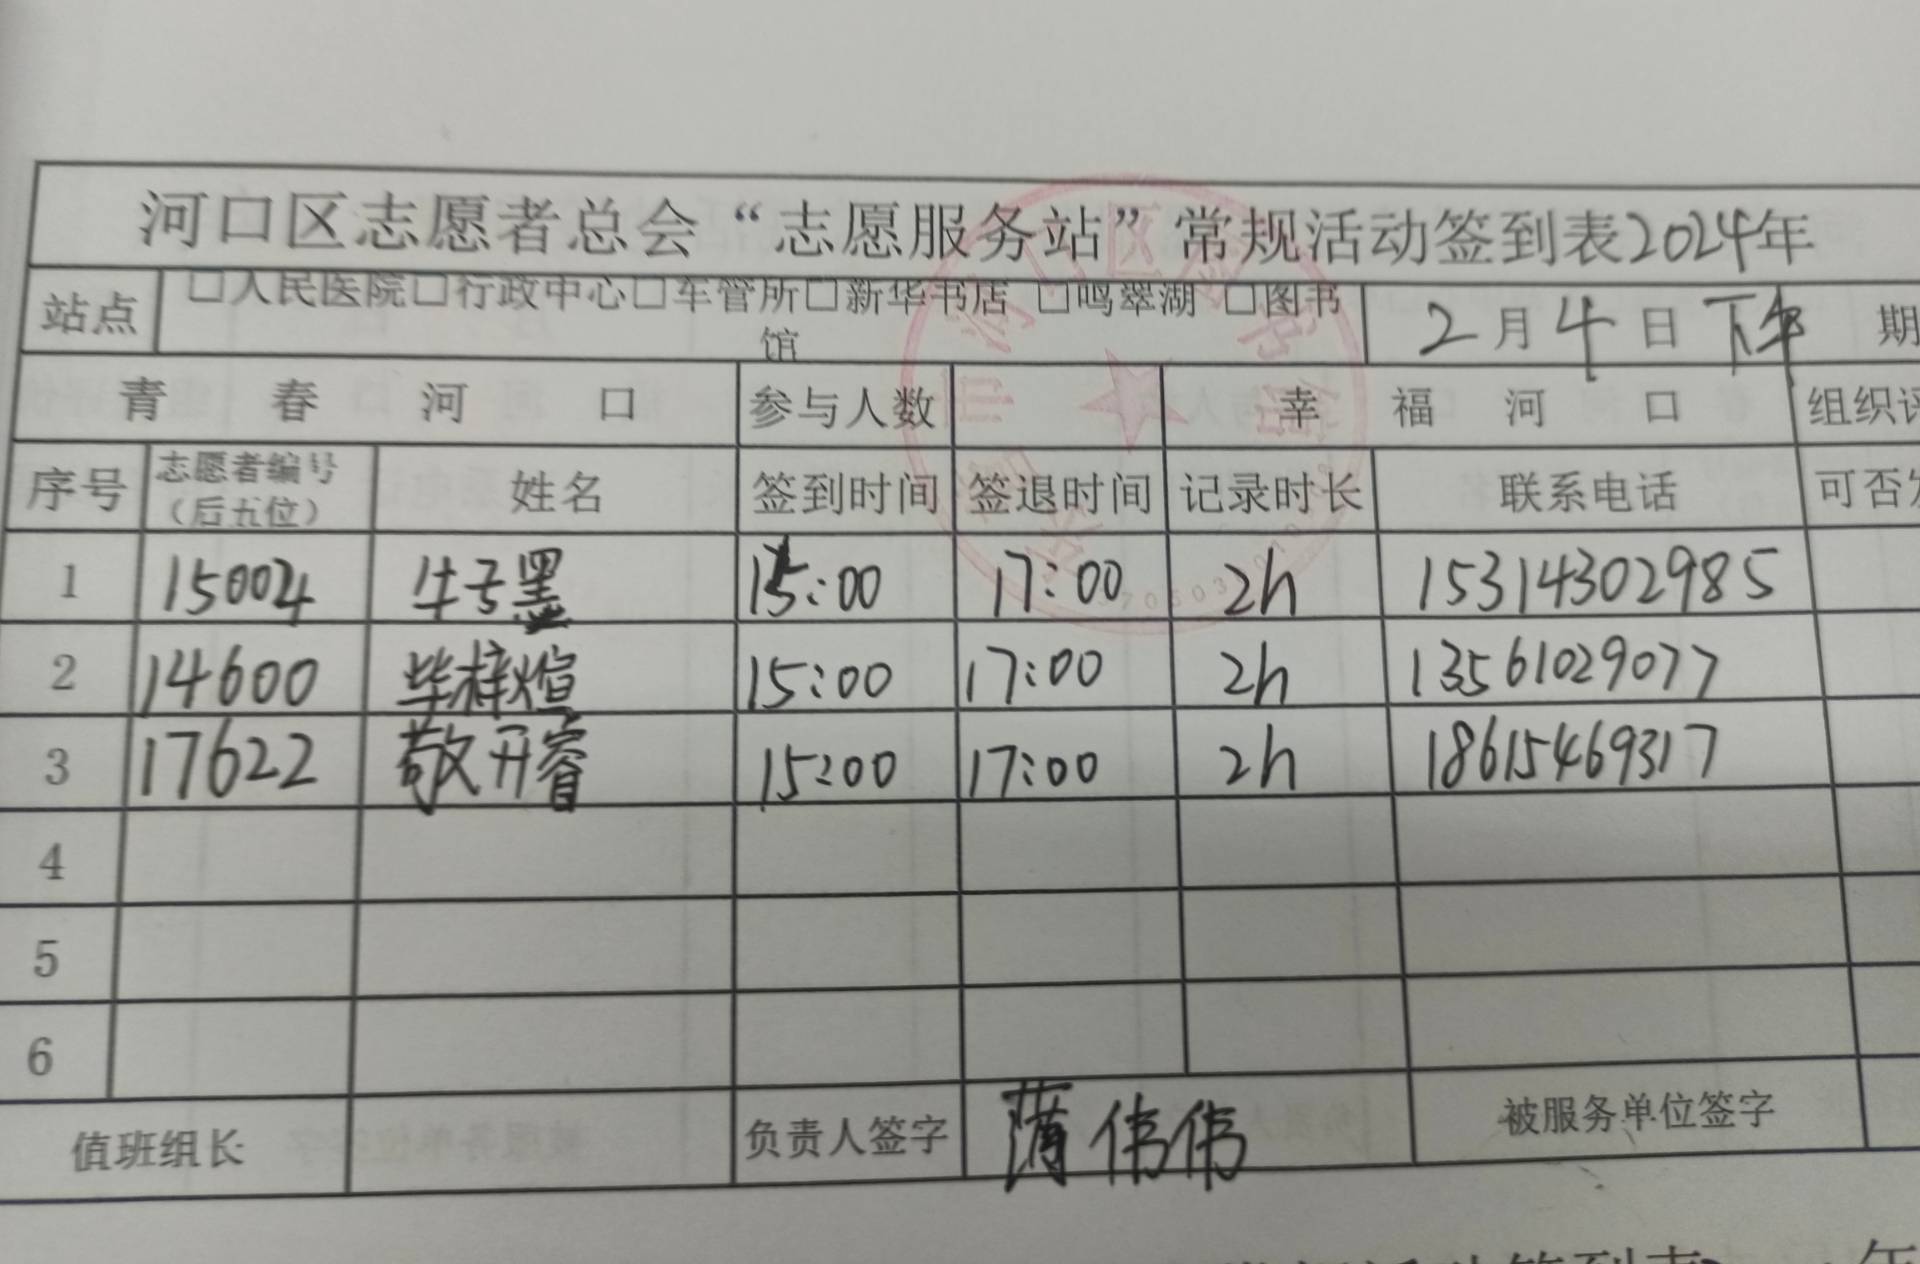 河口区志愿者总会“志愿服务站”常规活动签到表2024年
站点 □人民医院□行政中心□车管所□新华书店 □鸣翠湖 □图书馆 2月4日 下午 期
青春河口 参与人数 幸福河口 组织评
序号 志愿者编号（后五位） 姓名 签到时间 签退时间 记录时长 联系电话 可否发
1 15004 牛子墨 15:00 17:00 2h 15314302985
2 14600 毕梓煊 15:00 17:00 2h 13561029077
3 17622 敬开睿 15:00 17:00 2h 18615469317
4
5
6
值班组长 负责人签字 蒲伟伟 被服务单位签字